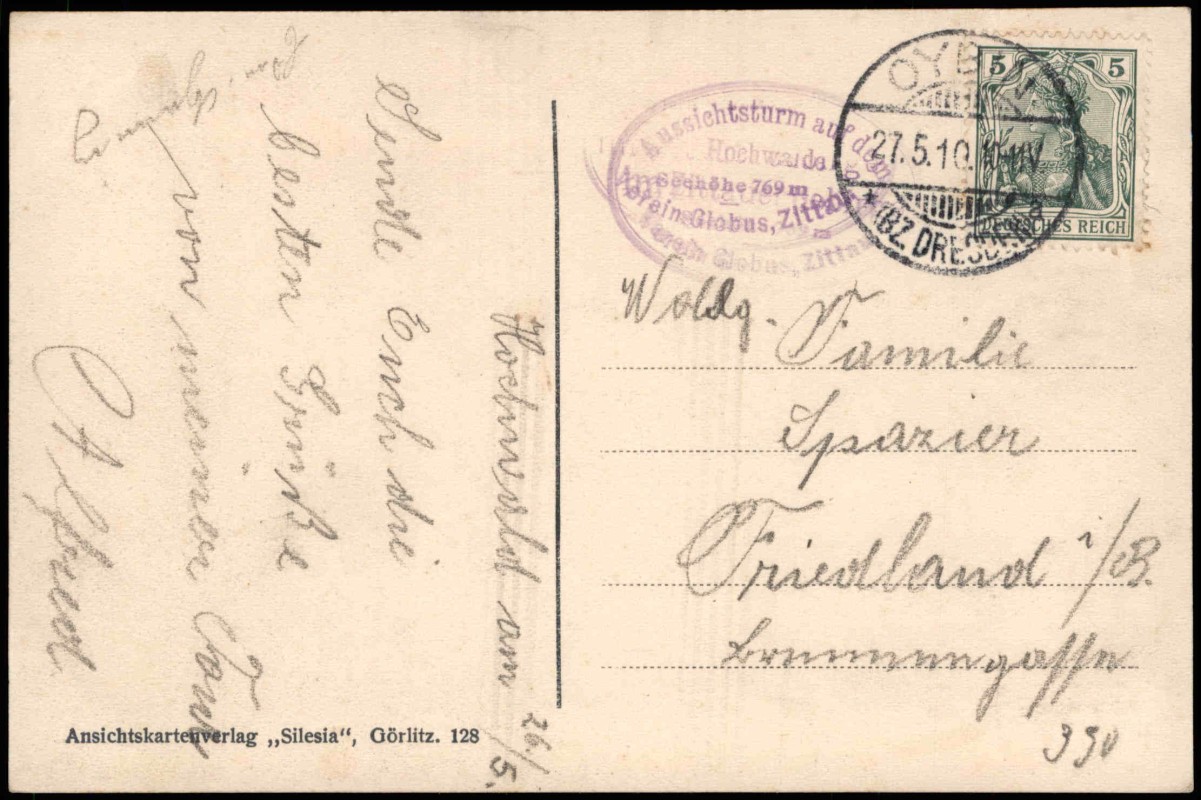 Hochwald am 26./5.
Sende Euch die
besten Grüße
von meiner Tour
Alfred
Ansichtskartenverlag „Silesia“, Görlitz. 128
Aussichtsturm auf dem
Hochwalde
Seehöhe 769 m
Verein Globus, Zittau
Verein Globus, Zittau
OYBIN
27.5.10. 10-11V.
* (BZ. DRESDEN) a
5 5
DEUTSCHES REICH
Wohlg. Familie
Spazier
Friedland i/B.
Brunnengasse
390